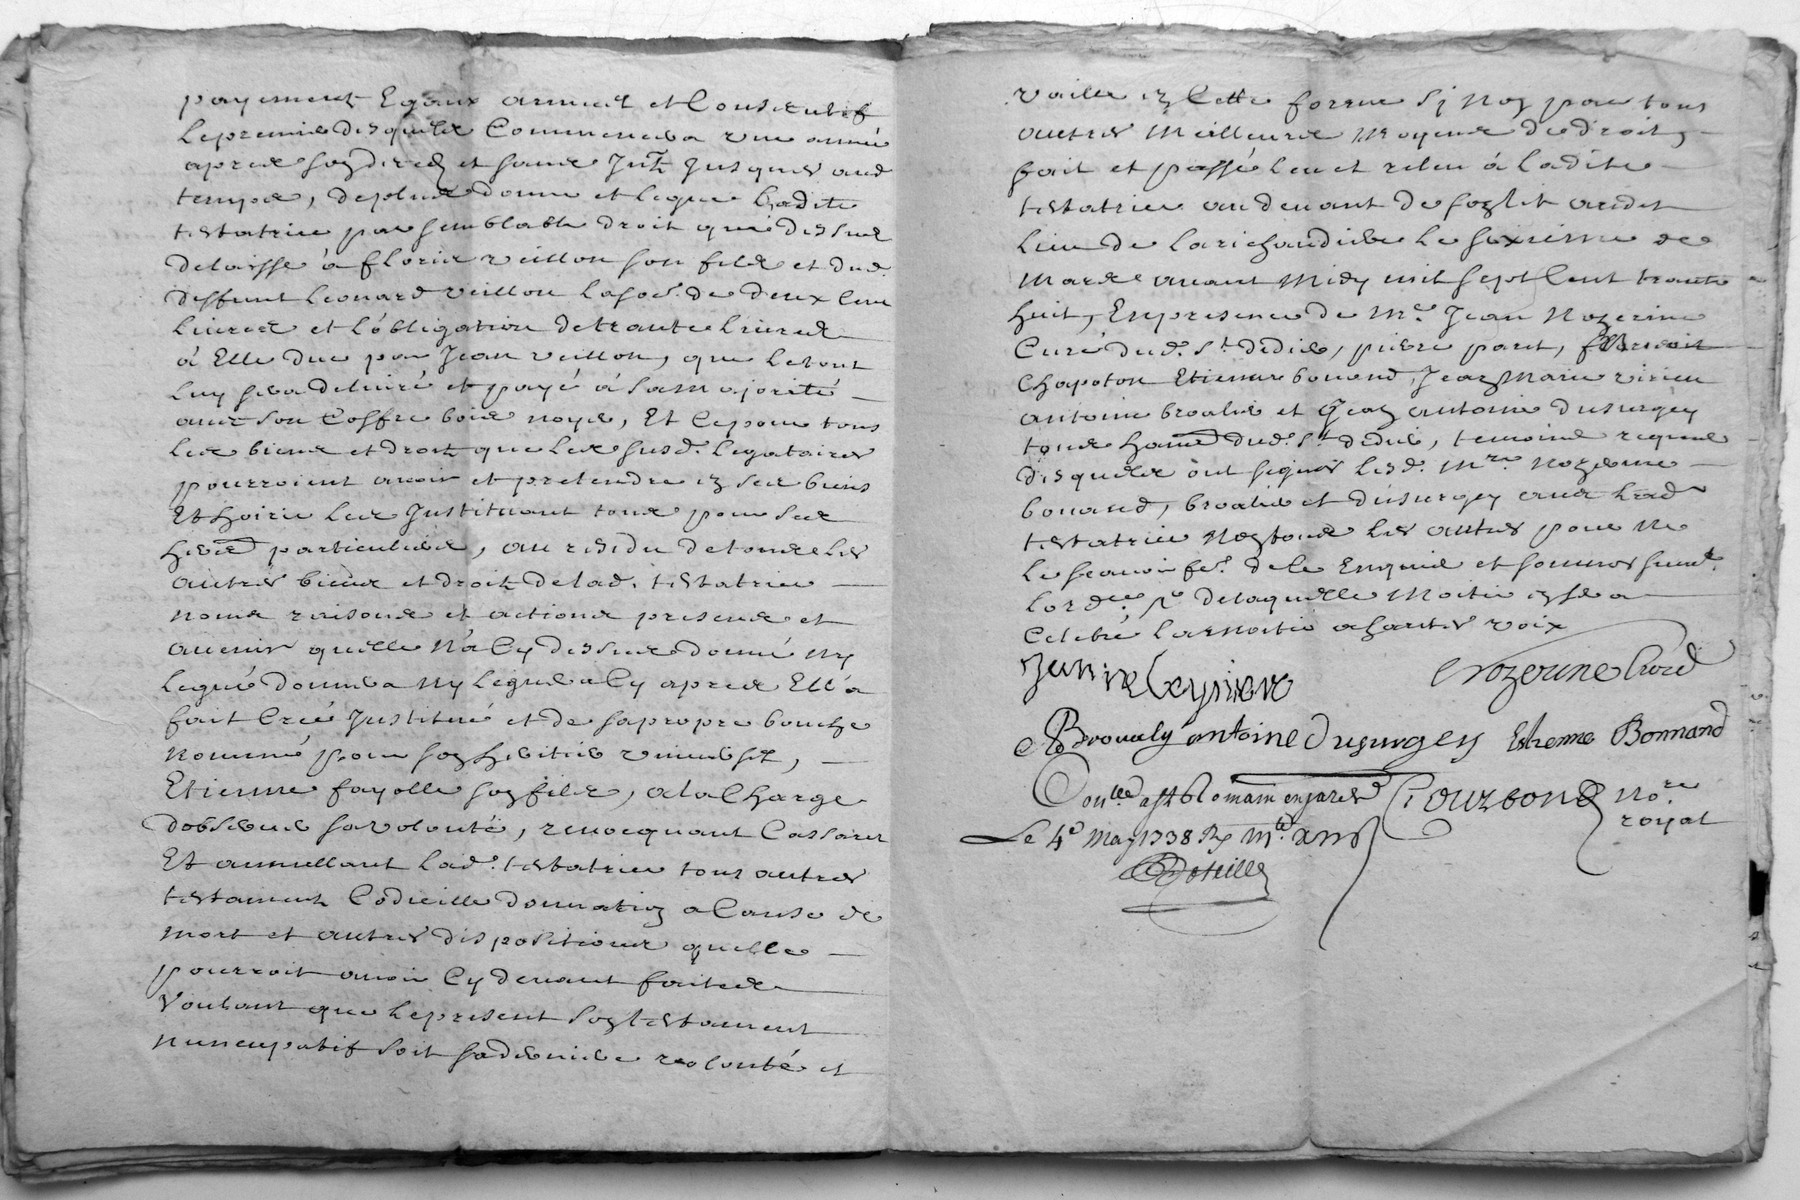 payement Egaux annuel et Consecutif
le premier desquels Commencera une année
apres son deced et sans Int. Jusques aud.
temps, deplus donne et legue Ladite
testatrice par semblable droit que dessus
delaisse à floris veillon son fils et dud.
deffunt Leonard veillon la so.e de deux Cent
livres et l'obligation detrante livres
à Elle due par Jean veillon, que letout
luy sera delivré et payé à sa majorité
avec son Coffre bois noyer, Et Ce pour tous
les biens et droit que les susd. legataires
pourroient avoir et pretendre en ses biens
Et hoirie les Instituant tous pour ses
heers particuliers, au residu de tous les
autres biens et droit de lad. testatrice
noms raisons et actions presens et
avenir quelle n'a Cy dessus donné ny
legué donnera ny leguera Cy apres Ell'a
fait Créé Institué et de sa propre bouche
nommé pour son heritier universel,
Etienne fayolle son fils, a la Charge
dobserver sa volonté, revocquant Cassant
Et annullant lad. testatrice tous autres
testament Codicille donnation a Cause de
mort et autres dispositions quelle
pourroit avoir Cy devant faites
Voulant que le present son testament
nuncupatif soit sa derniere volonté et
vaille en Cette forme si non par tous
autres meilleurs moyens de droit,
fait et passé leu et releu à ladite
testatrice au devant de son lit audit
lieu de la richaudiere le seizieme de
mars avant midy mil sept Cent trante
huit, En presence de Mre. Jean Nozerine
Curé dud. St. didier, pierre paret,
Chapoton Etienne bonand, Jean Marie virieu
antoine broalie et Jean antoine dusurgey
tous hants dud. St. didier, temoins requis
desquels ont signés lesd. Mre. Nozerine
bonand, broalie et dusurgey avec lad.
testatrice non tous les autres pour ne
le scavoir fe. de le Enquis et sommés suivt.
lord.ce de laquelle moitie en sera
Celebré la moitie a hautes voix
Nozerine Curé
Broualy antoine Dusurgey Etienne Bonnand
Con.lle a St Romain en jarest
Le 4e May 1738
no.re
royal